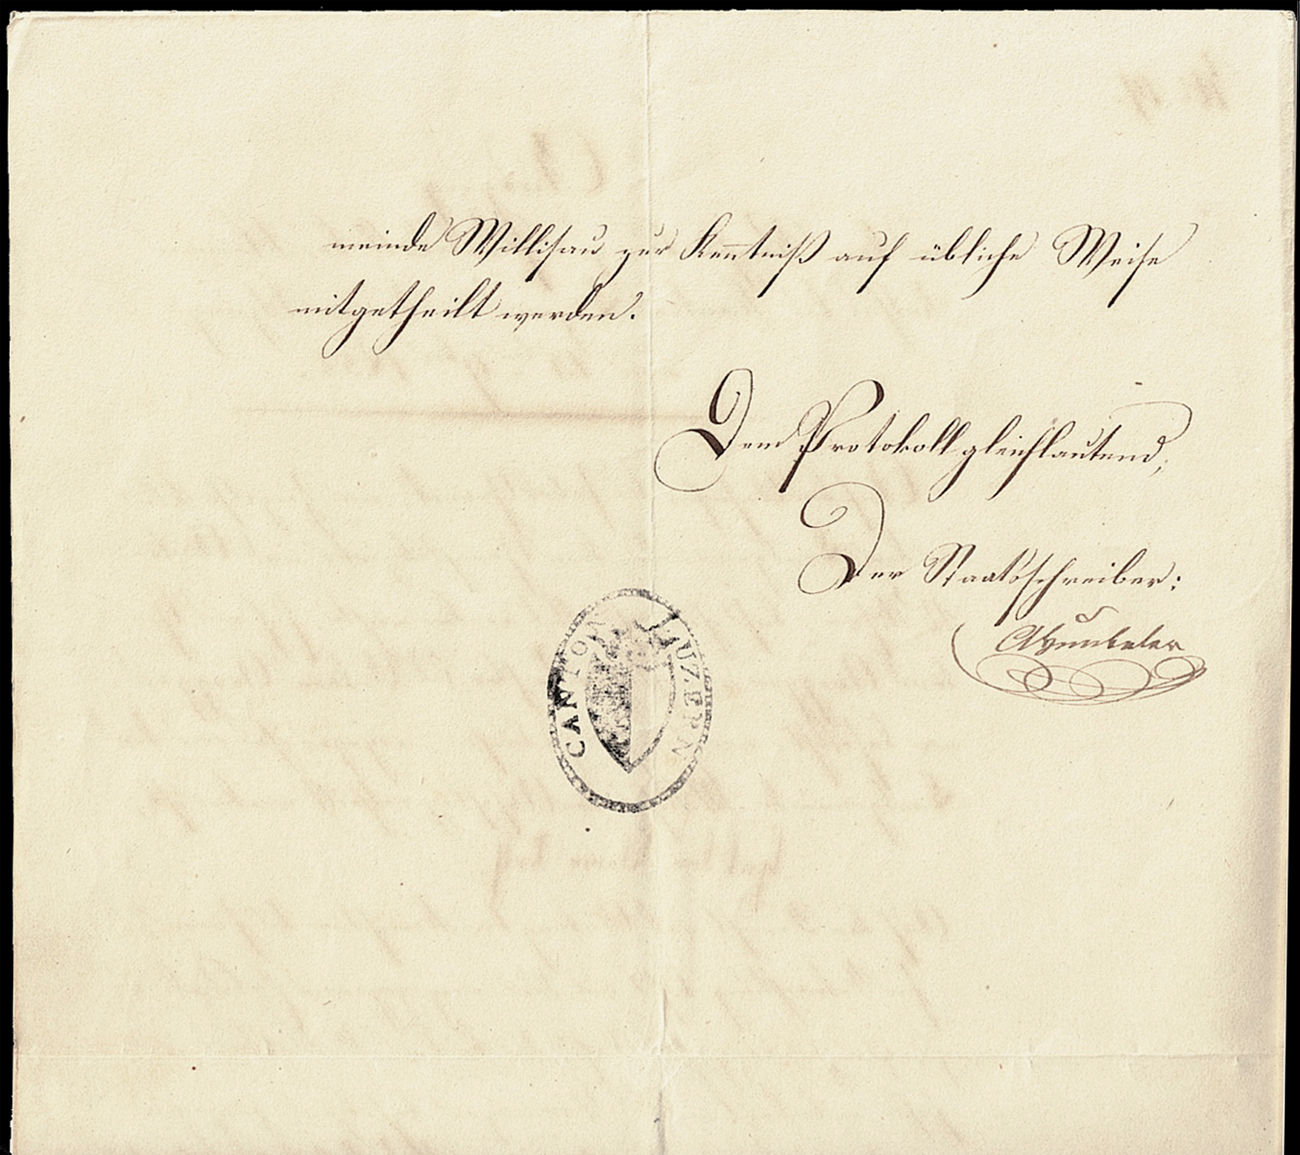 meinde Willisau zur Kenntniß auf übliche Weise
mitgetheilt werden.
Dem Protokoll gleichlautend,
Der Staatsschreiber:
CANTON LUZERN